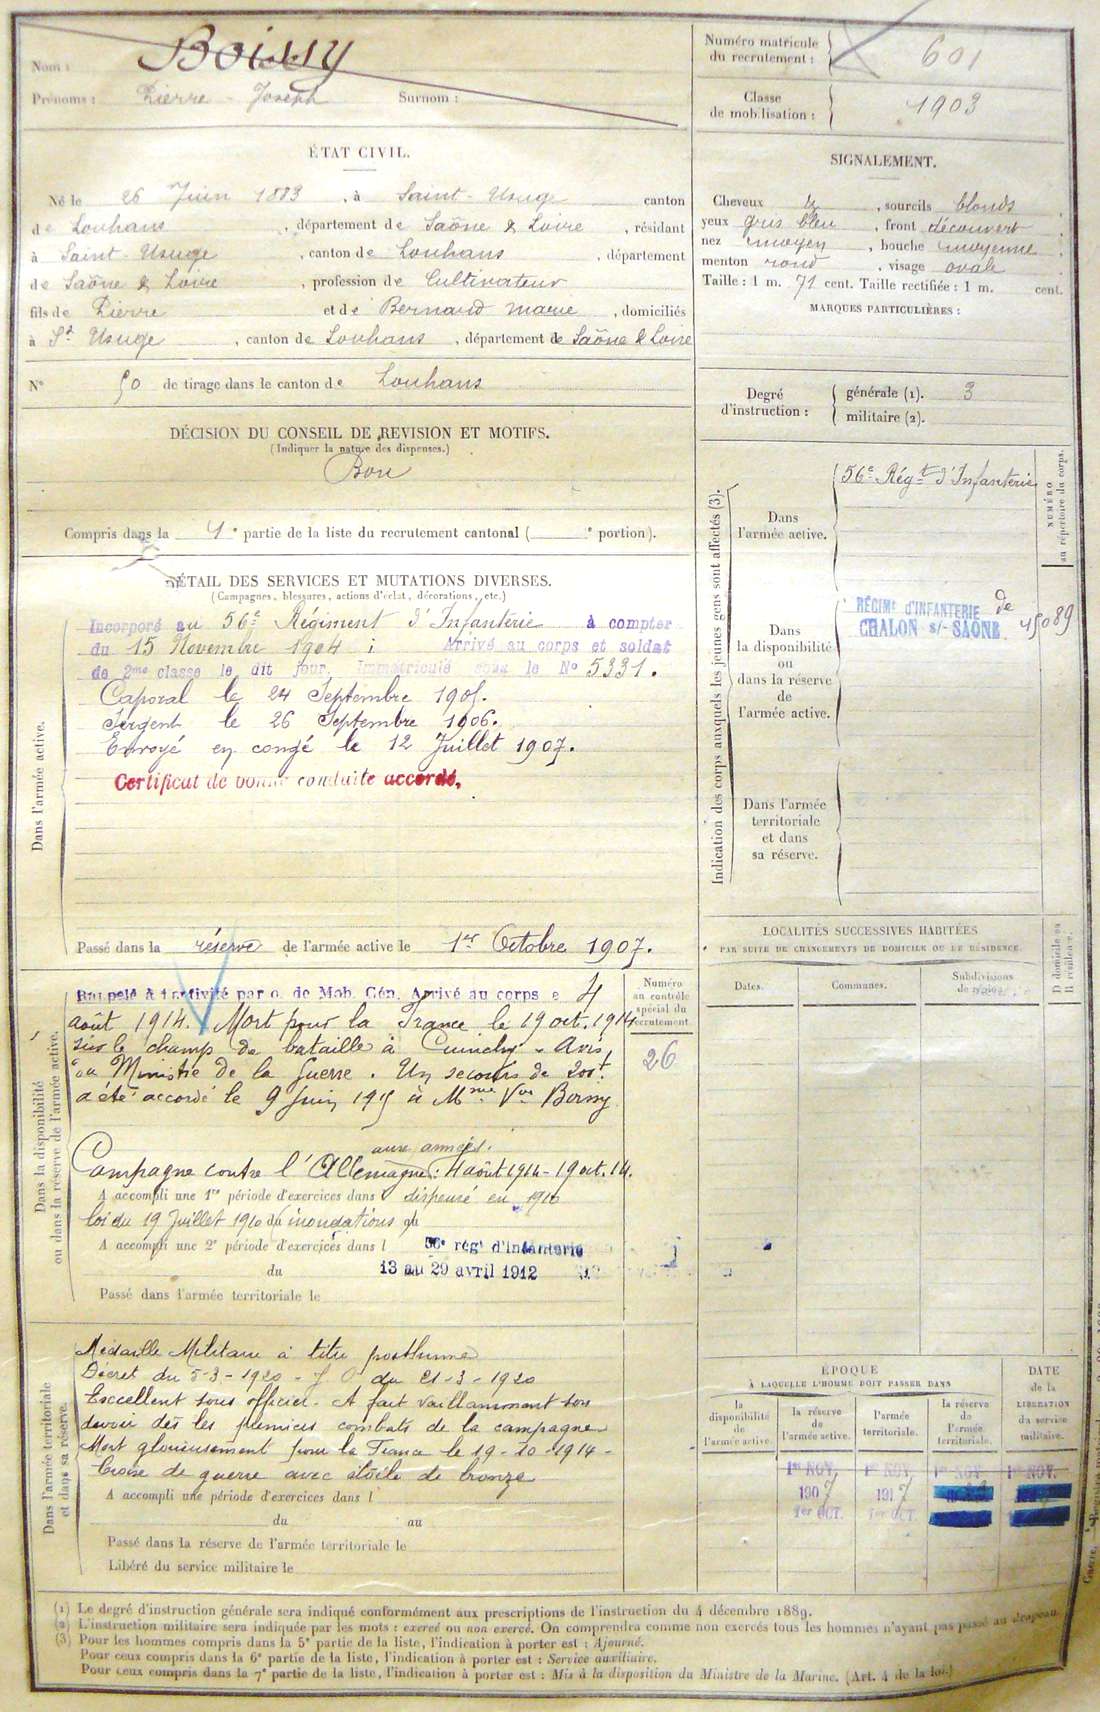 Nom : Boissy
Prénoms : Pierre - Joseph Surnom :
ÉTAT CIVIL.
Né le 26 Juin 1883, à Saint-Usuge canton
de Louhans, département de Saône & Loire, résidant
à Saint-Usuge, canton de Louhans, département
de Saône & Loire, profession de Cultivateur
fils de Pierre et de Bernard Marie, domiciliés
à St Usuge, canton de Louhans, département de Saône & Loire
N° 50 de tirage dans le canton de Louhans
DÉCISION DU CONSEIL DE REVISION ET MOTIFS.
(Indiquer la nature des dispenses.)
Bon
Compris dans la 1e partie de la liste du recrutement cantonal ( e portion).
DÉTAIL DES SERVICES ET MUTATIONS DIVERSES.
(Campagnes, blessures, actions d'éclat, décorations, etc.)
Dans l'armée active.
Incorporé au 56e Régiment d'Infanterie à compter
du 15 Novembre 1904 ; Arrivé au corps et soldat
de 2me classe le dit jour. Immatriculé sous le No 5331.
Caporal le 24 Septembre 1905.
Sergent le 26 Septembre 1906.
Envoyé en congé le 12 Juillet 1907.
Certificat de bonne conduite accordé.
Passé dans la réserve de l'armée active le 1er Octobre 1907.
Dans la disponibilité
ou dans la réserve de l'armée active.
Rappelé à l'activité par o. de Mob. Gén. Arrivé au corps e 4
août 1914. Mort pour la France le 19 oct. 1914
sur le champ de bataille à Cuinchy - Avis
du Ministre de la Guerre. Un secours de 200f
a été accordé le 9 Juin 1915 à Mme Vve Boissy
Campagne contre l'Allemagne : aux armées. 4 août 1914 - 19 oct. 14.
A accompli une 1re période d'exercices dans dispensé en 1910
loi du 19 Juillet 1910 du (inondations) au
A accompli une 2e période d'exercices dans l 56e régt d'infanterie
du 13 au 29 avril 1912
Passé dans l'armée territoriale le
Numéro
au contrôle
spécial du
recrutement
26
Dans l'armée territoriale
et dans sa réserve.
Médaille Militaire à titre posthume
Décret du 5-3-1920 - J O du 21-3-1920
Excellent sous officier. A fait vaillamment son
devoir dès les premiers combats de la campagne
Mort glorieusement pour la France le 19-10-1914 -
Croix de guerre avec étoile de bronze
A accompli une période d'exercices dans l
du au
Passé dans la réserve de l'armée territoriale le
Libéré du service militaire le
Numéro matricule
du recrutement : 601
Classe
de mobilisation : 1903
SIGNALEMENT.
Cheveux et, sourcils blonds
yeux gris bleu, front découvert
nez moyen, bouche moyenne
menton rond, visage ovale
Taille : 1 m. 71 cent. Taille rectifiée : 1 m. cent.
MARQUES PARTICULIÈRES :
Degré
d'instruction :
générale (1). 3
militaire (2).
Indication des corps auxquels les jeunes gens sont affectés (3).
NUMÉRO
au répertoire du corps.
Dans
l'armée active.
56e Régt d'Infanterie
Dans
la disponibilité
ou
dans la réserve
de
l'armée active.
RÉGIMt D'INFANTERIE de
CHALON s/- SAÔNE 15089
Dans l'armée
territoriale
et dans
sa réserve.
LOCALITÉS SUCCESSIVES HABITÉES
PAR SUITE DE CHANGEMENTS DE DOMICILE OU DE RÉSIDENCE.
Dates.
Communes.
Subdivisions
de région.
D domicile ou
R résidence.
ÉPOQUE
À LAQUELLE L'HOMME DOIT PASSER DANS
la
disponibilité
de
l'armée active.
la réserve
de
l'armée active.
l'armée
territoriale.
la réserve
de
l'armée
territoriale.
DATE
de la
LIBÉRATION
du service
militaire.
1er NOV. 1er NOV. 1er NOV. 1er NOV.
1907 1917
1er OCT. 1er OCT.
(1) Le degré d'instruction générale sera indiqué conformément aux prescriptions de l'instruction du 4 décembre 1889.
(2) L'instruction militaire sera indiquée par les mots : exercé ou non exercé. On comprendra comme non exercés tous les hommes n'ayant pas passé au drapeau.
(3) Pour les hommes compris dans la 5e partie de la liste, l'indication à porter est : Ajourné.
Pour ceux compris dans la 6e partie de la liste, l'indication à porter est : Service auxiliaire.
Pour ceux compris dans la 7e partie de la liste, l'indication à porter est : Mis à la disposition du Ministre de la Marine. (Art. 4 de la loi.)